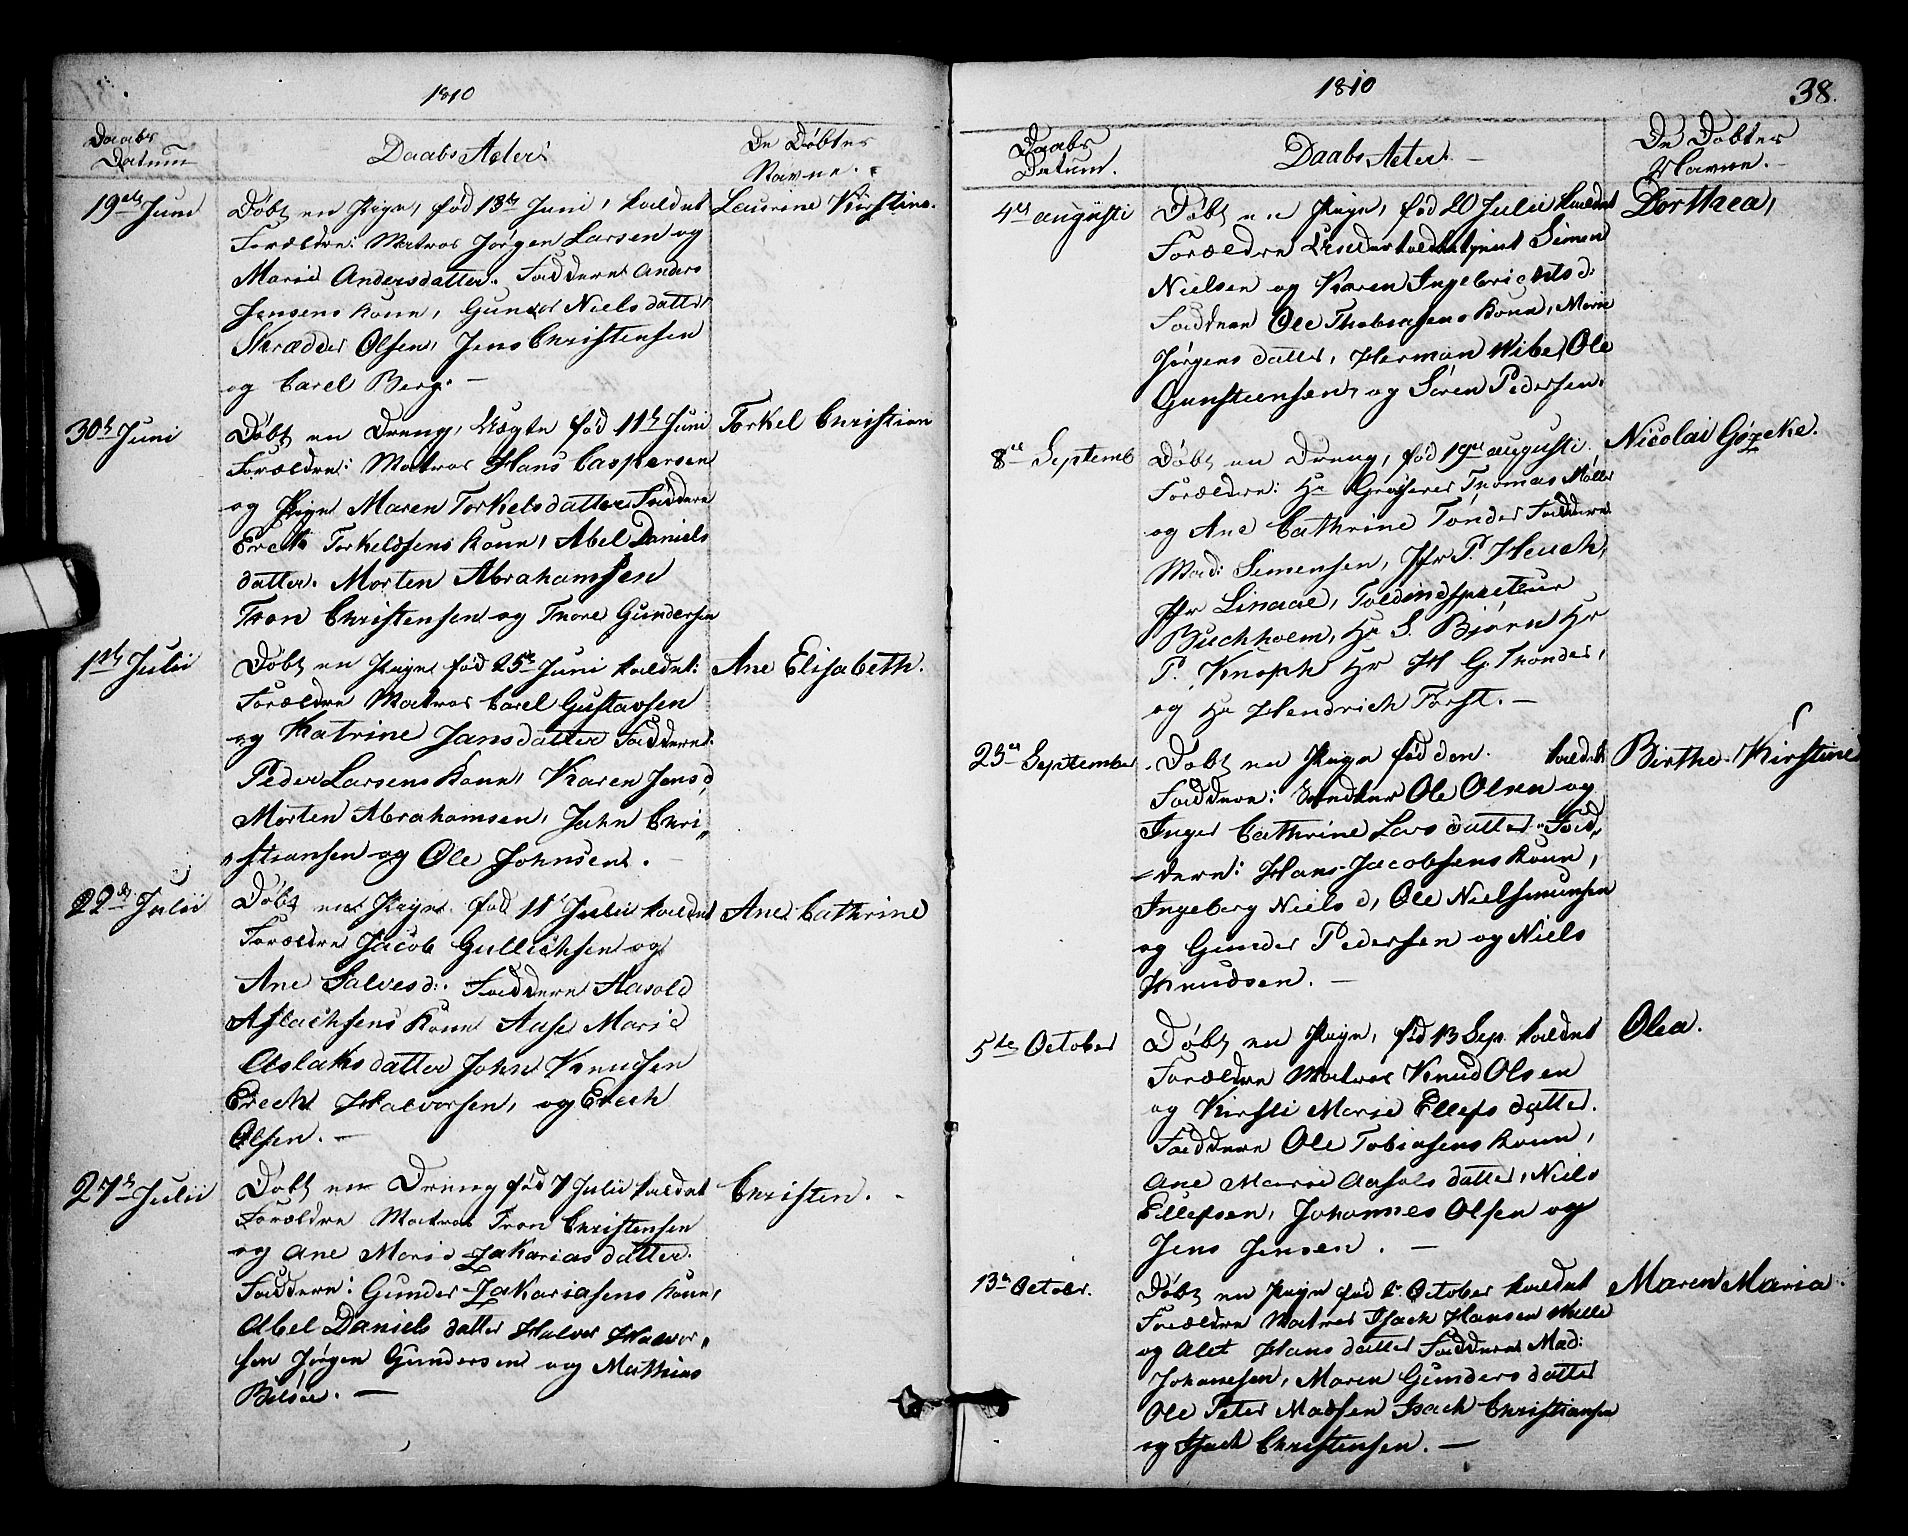 1810
Daabs Datum
Daabs Acter
De Døbtes Navne.
19de Juni
Døbt en Pige, fød 13de Juni, kaldet
Laurine Kirstine.
Forældre: Matros Jørgen Larsen og
Marie Andersdatter. Faddere Anders
Jensens Kone, Gunder Nielsdatter
Skrædder Olsen, Jens Christensen
og Carel Berg. —
30te Juni
Døbt en Dreng, Uægte fød 11te Juni
Torkel Christian
Forældre: Matros Hans Caspersen
og Pige Maren Torkelsdatter. Faddere
Erek Torkeldsens Kone, Abel Daniels
datter. Morten Abrahamsen
Tron Christensen og Tore Gundersen
1ste Julii
Døbt en Pige fød 25de Juni kaldet:
Ane Elisabeth.
Forældre Matros Carel Gustavsen
og Katrine Jansdatter Faddere:
Peder Larsens Kone, Karen Jensd,
Morten Abrahamsen, Jahn Chri-
stiansen og Ole Johnsen. —
22de Julii
Døbt en Pige. fød 11 Julii kaldet
Ane Cathrine
Forældre Jacob Gullichsen og
Ane Salvesd: Faddere Aasold
Aslachsens Kone Aase Marie
Aslaksdatter John Knudsen
Erech Halvorsen, og Erech
Olsen. —
27de Julii
Døbt en Dreng fød 7 Julii kaldet
Christen. —
Forældre Matros Tron Christensen
og Ane Marie Zakariasdatter.
Faddere: Gunder Zakariasens Kone,
Abel Daniels datter Halvor Halvor-
sen Jørgen Gundersen og Mathias
1810
38.
Daabs Datum.
Daabs Acter. —
De Døbtes Navne. —
4de augusti
Døbt en Pige, fød 20 Julii kaldet
Dorthea,
Forældre Simen
Nielsen og Karen Ingebrichtsd:
Faddere Ole Thobiasens Kone, Marie
Jørgensdatter, Herman Wibe, Ole
Gunsteensen og Søren Pedersen.
8de Septemb
Døbt en Dreng, fød 19de augusti.
Nicolai Görcke.
Forældre: Hr Grosserer Thomas Møller
og Ane Cathrine Tønder Faddere
Mad: Simensen, Jfr P. Heuch,
Jfr Linaae, Toldinspecteur
Buchholm, Hr S. Bjørn Hr
P. Knoph Hr H G. Thonder,
og Hr Hendrich Först. —
23de September
Døbt en Pige fød den. kaldet
Birthe Kirstine
Faddere: Ole Olsen og
Inger Cathrine Larsdatter. Fad-
dere: Hans Jacobsens Kone,
Ingeberg Nielsd, Ole Nielsmunsen
og Gunder Pedersen og Niels
Knudsen. —
5te October
Døbt en Pige, fød 13 Sep. kaldet
Olea.
Forældre Matros Knud Olsen
og Kirsti Marie Ellefsdatter.
Faddere Ole Tobiasens Kone,
Ane Marie Aasolsdatter, Niels
Ellefsen, Johannes Olsen og
Jens Jensen. —
13de Octobr.
Døbt en Pige fød October kaldet
Maren Maria.
Forældre Matros Isach Hansen Wille
og Alet Hansdatter Faddere Mad:
Johanesen, Maren Gundersdatter
Ole Peter Madsen Isach Christiansen
og Isach Christensen. —